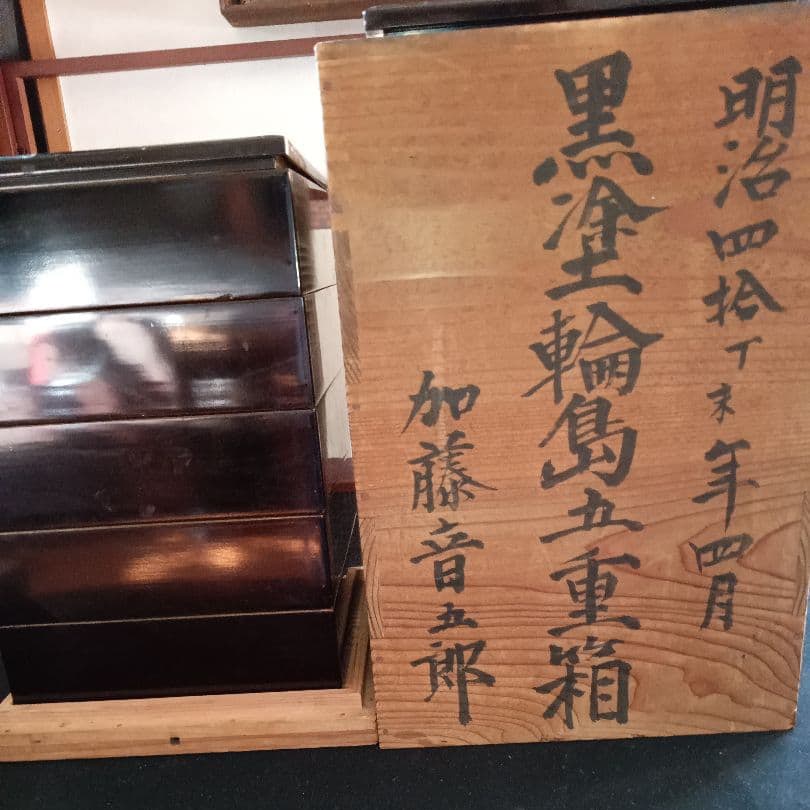 明治四拾丁未年四月
黒塗輪島五重箱
加藤音五郎